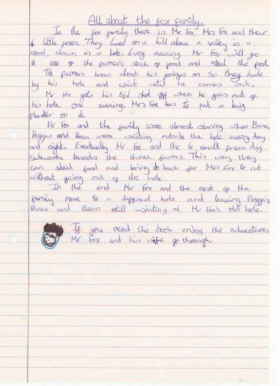 All about the fox family.
In the fox family there is Mr Fox, Mrs Fox and their
4 little foxes. They lived on a hill above a valley in a
wood, down in a hole. Every evening Mr Fox will go
to one of the farmer's stock of food and steal the food.
The farmers know about his so they hide
by his hole and wait until he comes out.
Mr Fox gets his tail shot off when he goes out of
his hole one evening. Mrs Fox has to put a big
plaster on it.
Mr Fox and the family were almost starving when Bunce,
Boggis and Bean were waiting outside the hole every day
and night. Eventually Mr Fox and the 4 small foxes dig
towards the three farms. This way they
can steal food and bring it back for Mrs Fox to eat
without going out of the hole.
In the end Mr Fox and the rest of the
family move to a different hole and leaving Boggis,
Bunce and Bean still waiting at Mr Fox's old hole.
If you read the book enjoy the adventures
Mr Fox and his wife go through.